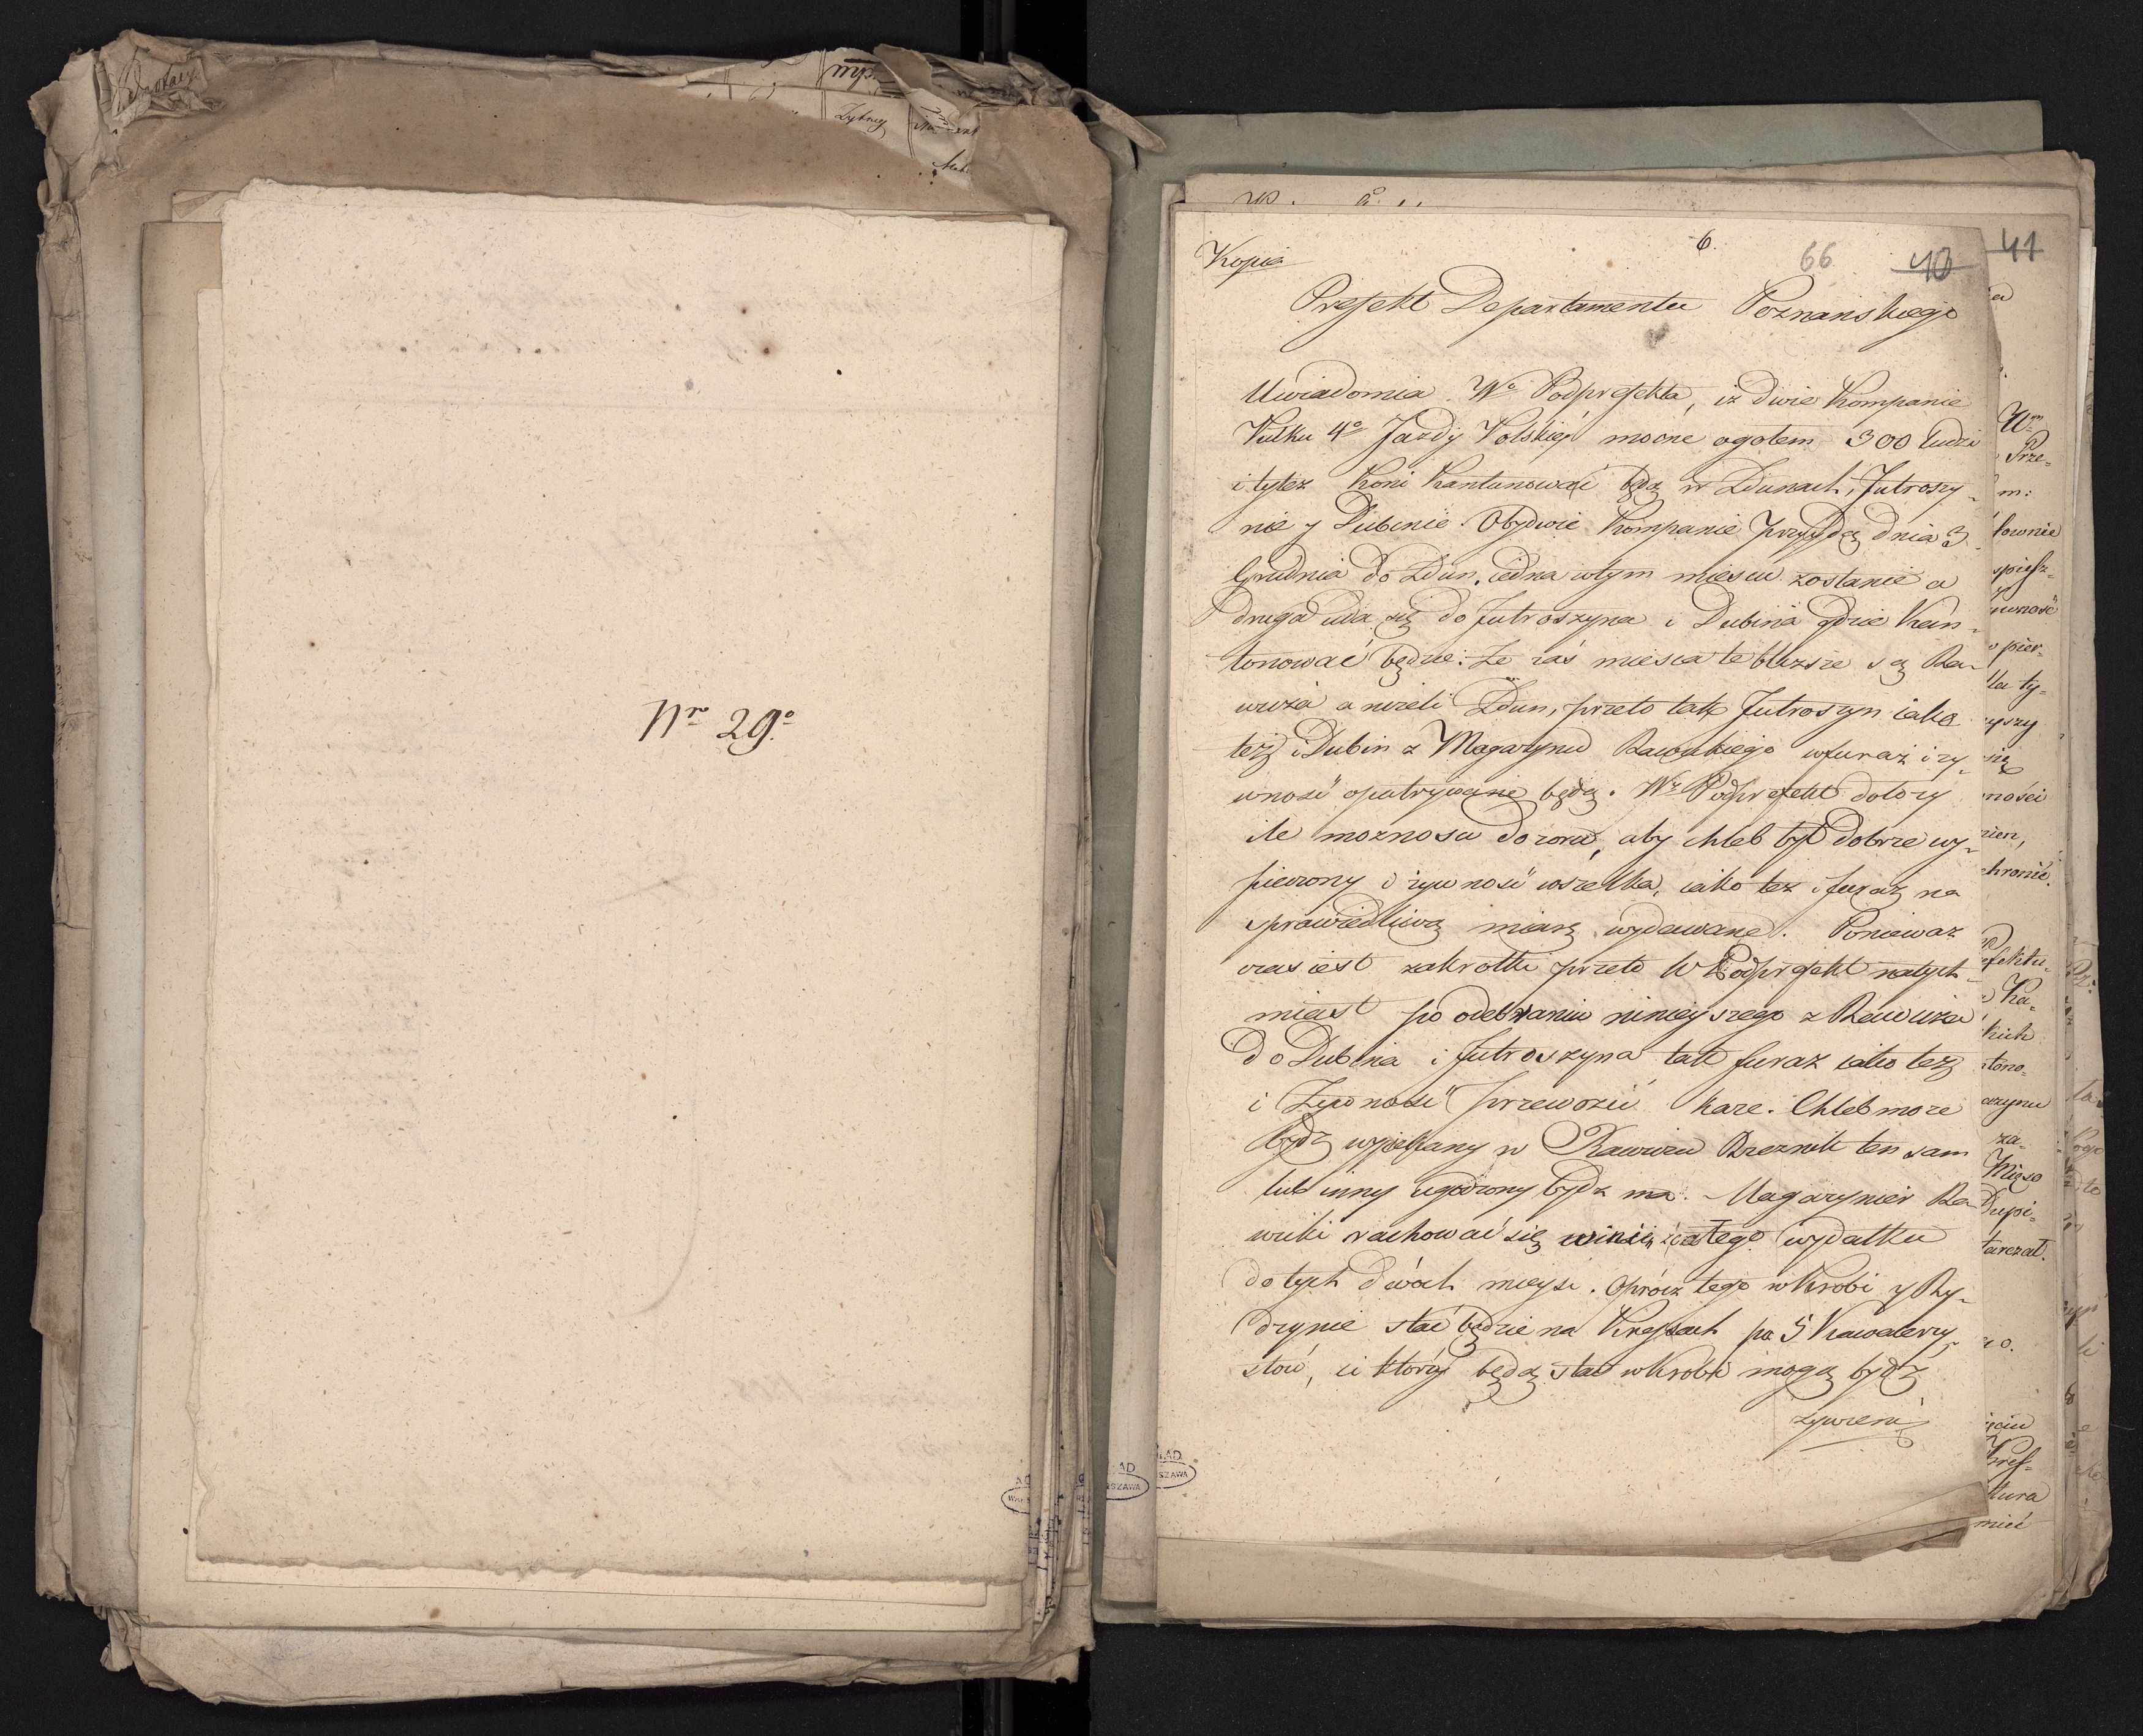 Nro 29o
Kopia
6.
66
40
41
Prefekt Departamentu Poznanskiego
Uwiadomia Wo Podprefekta, iż dwie Kompanie
Pułku 4o Jazdy Polskiej mocne ogołem 300 ludzi
i tyleż Koni Kantonować będą w Zdunach, Jutroszy-
nie y Dubinie. Obydwie Kompanie przyydą dnia 3
Grudnia do Zdun, iedna w tym miescu zostanie a
druga uda się do Jutroszyna i Dubina gdzie Kan-
tonować będzie. Ze zaś mieisca te bliższe są Ra-
wicza a niżeli Zdun, przeto tak Jutroszyn iako
też i Dubin z Magazynu Rawickiego w furaż i ży-
wność opatrywane będą. Wy Podprefekt dołoży
ile możnosci dozoru, aby chleb był dobrze wy-
pieczony i żywność wszelka, iako też i furaż na
sprawiedliwą miarę wydawane. Ponieważ
czas iest zakrotki przeto W Podprefekt natych-
miast po odebraniu ninieyszego z Rawicza
do Dubina i Jutroszyna tak furaż iako też
i Żywność przewozić każe. Chleb może
bydź wypiekany w Rawiczu Rzeznik ten sam
lub inny ugodzony bydź ma. Magazynier Ra-
wicki rachować się winien z całego wydatku
do tych dwóch mieysc. Oprócz tego w Krobi y Ry-
dzynie stać będzie na Kresach po 5 Kawalerzy-
stów, ci którzy będą stać w Krobi mogą bydź
żywieni
Wm
Prze-
m:
łownie
spiesz-
wność
pier-
dla ty-
ności
chronić.
efektu-
Ka-
kich
ntono-
azynu
za-
Mięso
Dupi-
tarczał.
Pref-
ktura
mieć